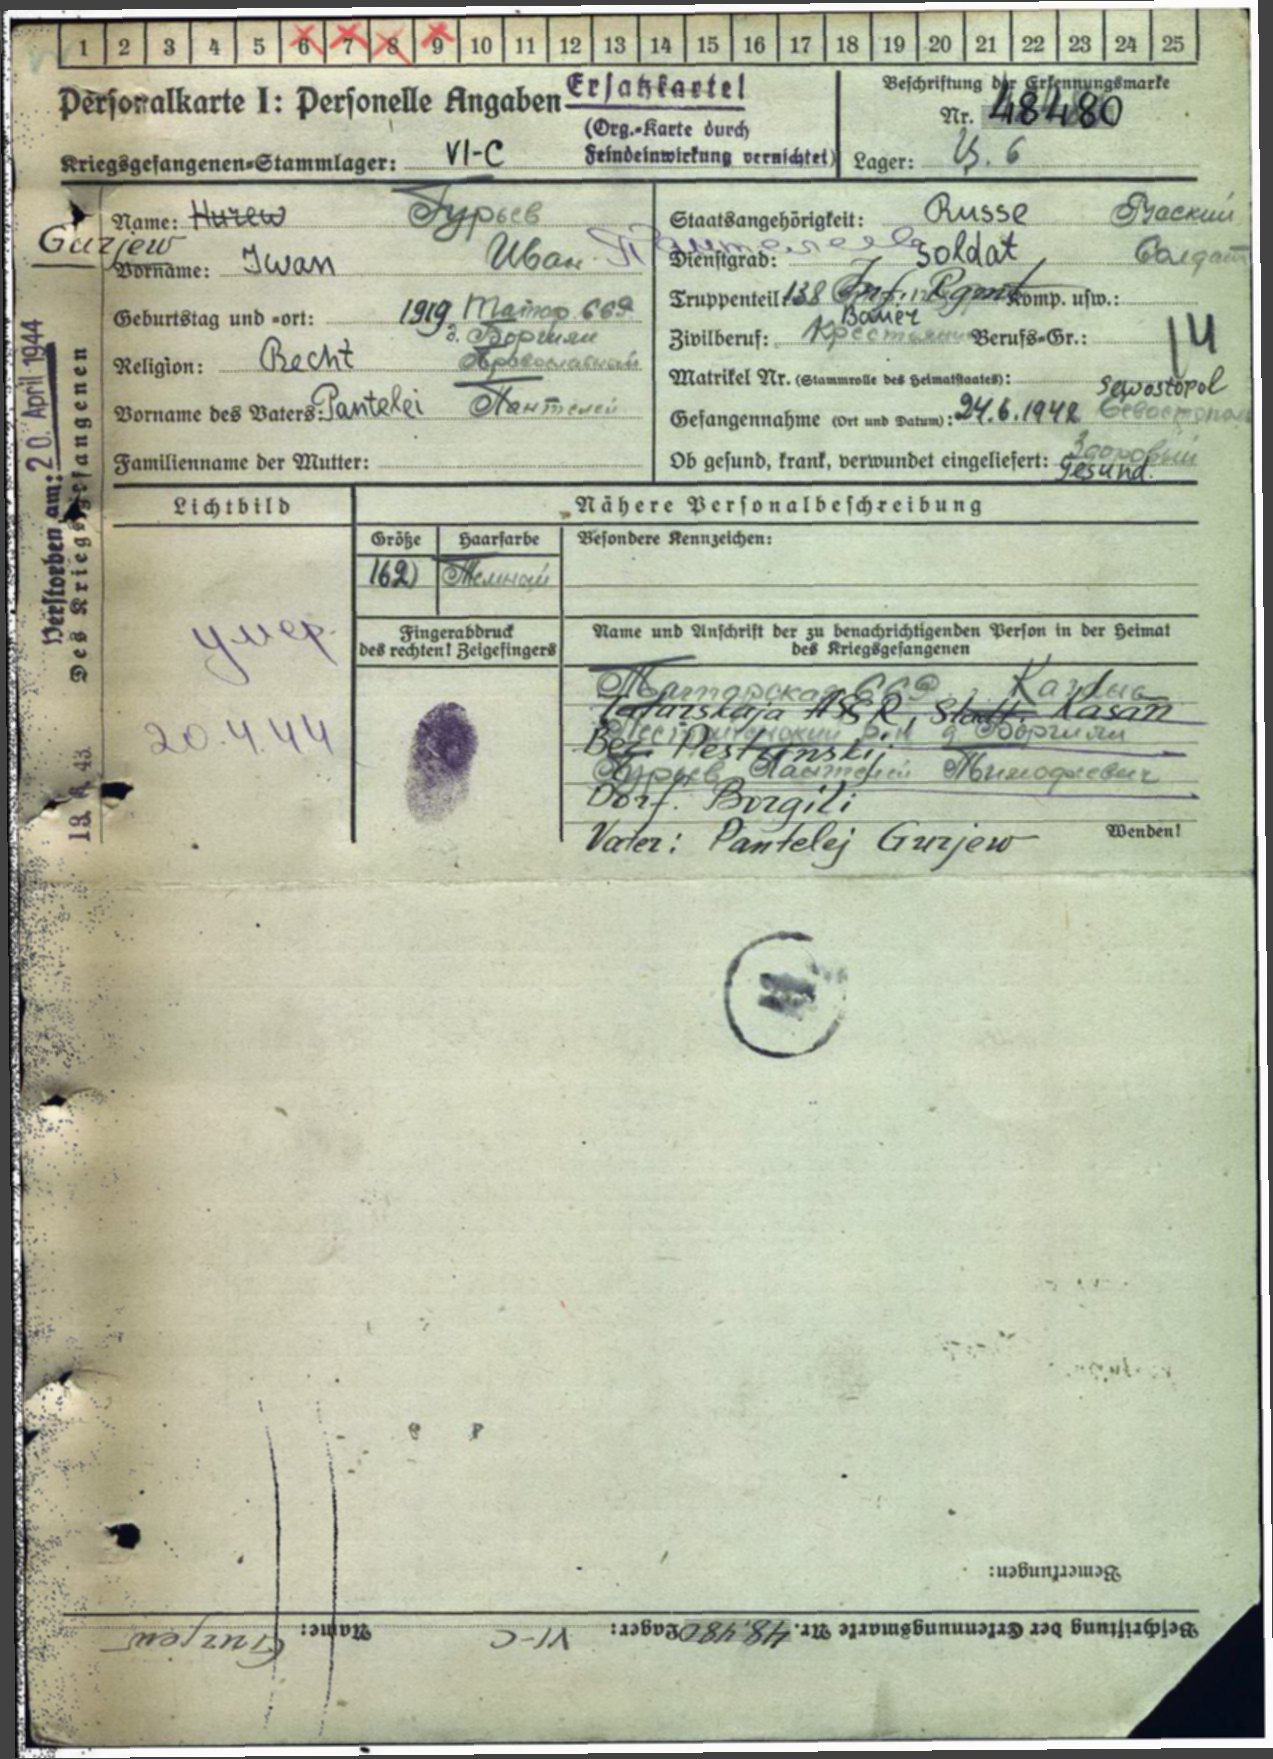 1 2 3 4 5 6 7 8 9 10 11 12 13 14 15 16 17 18 19 20 21 22 23 24 25
Personalkarte I: Personelle Angaben
Ersatzkartei
(Org.-Karte durch
Feindeinwirkung vernichtet)
Kriegsgefangenen-Stammlager: VI-C
Beschriftung der Erkennungsmarke
Nr. 48480
Lager: 6
Name: Hurew Гурьев
Gurjew
Vorname: Iwan Иван
Geburtstag und -ort: 1919 Татар ССР
д. Боргили
Religion: Recht Православный
Vorname des Vaters: Pantelei Пантелей
Familienname der Mutter:
Staatsangehörigkeit: Russe
Dienstgrad: Soldat Солдат
Truppenteil: 138 Inf. Rgmt Komp. usw.:
Bauer
Zivilberuf: Berufs-Gr.: 14
Matrikel Nr. (Stammrolle des Heimatstaates):
Sewostopol
Gefangennahme (Ort und Datum): 24.6.1942 Севастополь
Ob gesund, krank, verwundet eingeliefert: Здоровый
Gesund.
Verstorben am: 20. April 1944
Des Kriegsgefangenen
Lichtbild
Nähere Personalbeschreibung
Größe Haarfarbe Besondere Kennzeichen:
162 Темный
умер
20.4.44
Fingerabdruck
des rechten! Zeigefingers
Name und Anschrift der zu benachrichtigenden Person in der Heimat
des Kriegsgefangenen
Татарская ССР Казань
Tatarskaja ASSR, Stadt. Kasan
д Боргили
Bez Pestrinskij
Гурьев Пантелей Тимофеевич
Dorf. Borgili
Vater: Pantelej Gurjew
Wenden!
Bemerkungen:
Beschriftung der Erkennungsmarke Nr. 48.480 Lager: VI-C Name: Gurjew